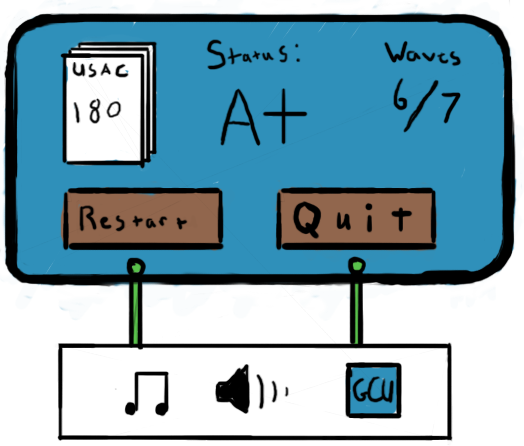 USAC
180
Status:
A+
Waves
6/7
Restart
Quit
GCU